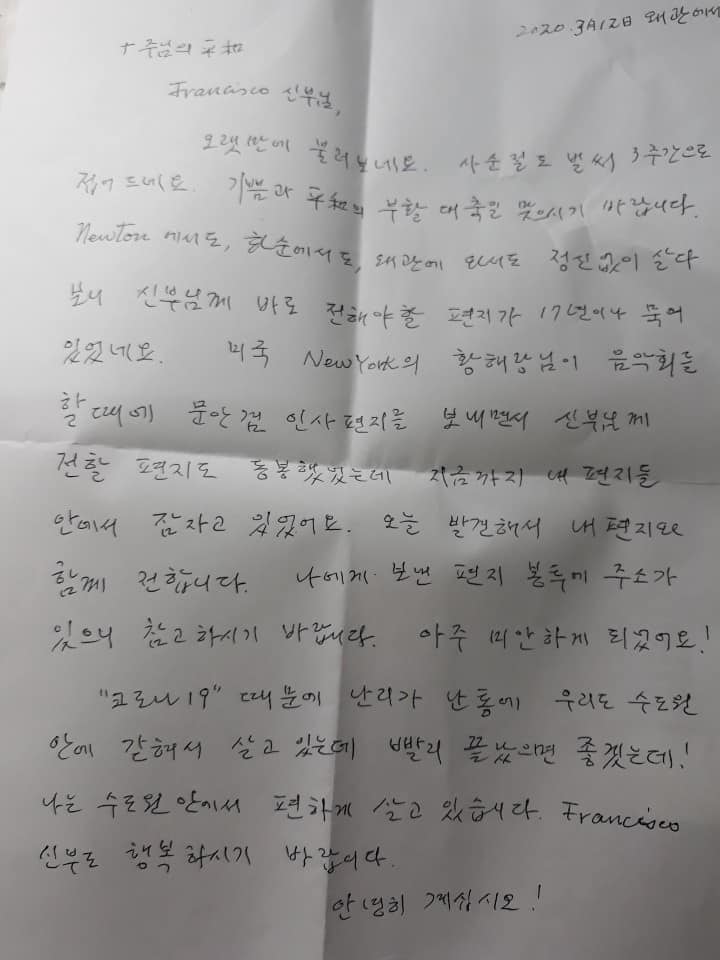 2020.3月12日 왜관에서
+ 주님의 平和
Francisco 신부님,
오랫만에 불러보네요. 사순절도 벌써 3주간으로
접어드네요. 기쁨과 平和의 부활 대축일 맞으시기 바랍니다.
Newton에서도, 화순에서도, 왜관에 와서도 정신없이 살다
보니 신부님께 바로 전해야할 편지가 17년이나 묵어
있었네요. 미국 New York의 황해랑님이 음악회를
할 때에 문안겸 인사편지를 보내면서 신부님께
전할 편지도 동봉했었는데 지금까지 내 편지들
안에서 잠자고 있었어요. 오늘 발견해서 내 편지와
함께 전합니다. 나에게 보낸 편지 봉투에 주소가
있으니 참고하시기 바랍니다. 아주 미안하게 되었어요!
"코로나19" 때문에 난리가 난 통에 우리도 수도원
안에 갇혀서 살고 있는데 빨리 끝났으면 좋겠는데!
나는 수도원 안에서 편하게 살고 있습니다. Francisco
신부도 행복하시기 바랍니다.
안녕히 계십시오!